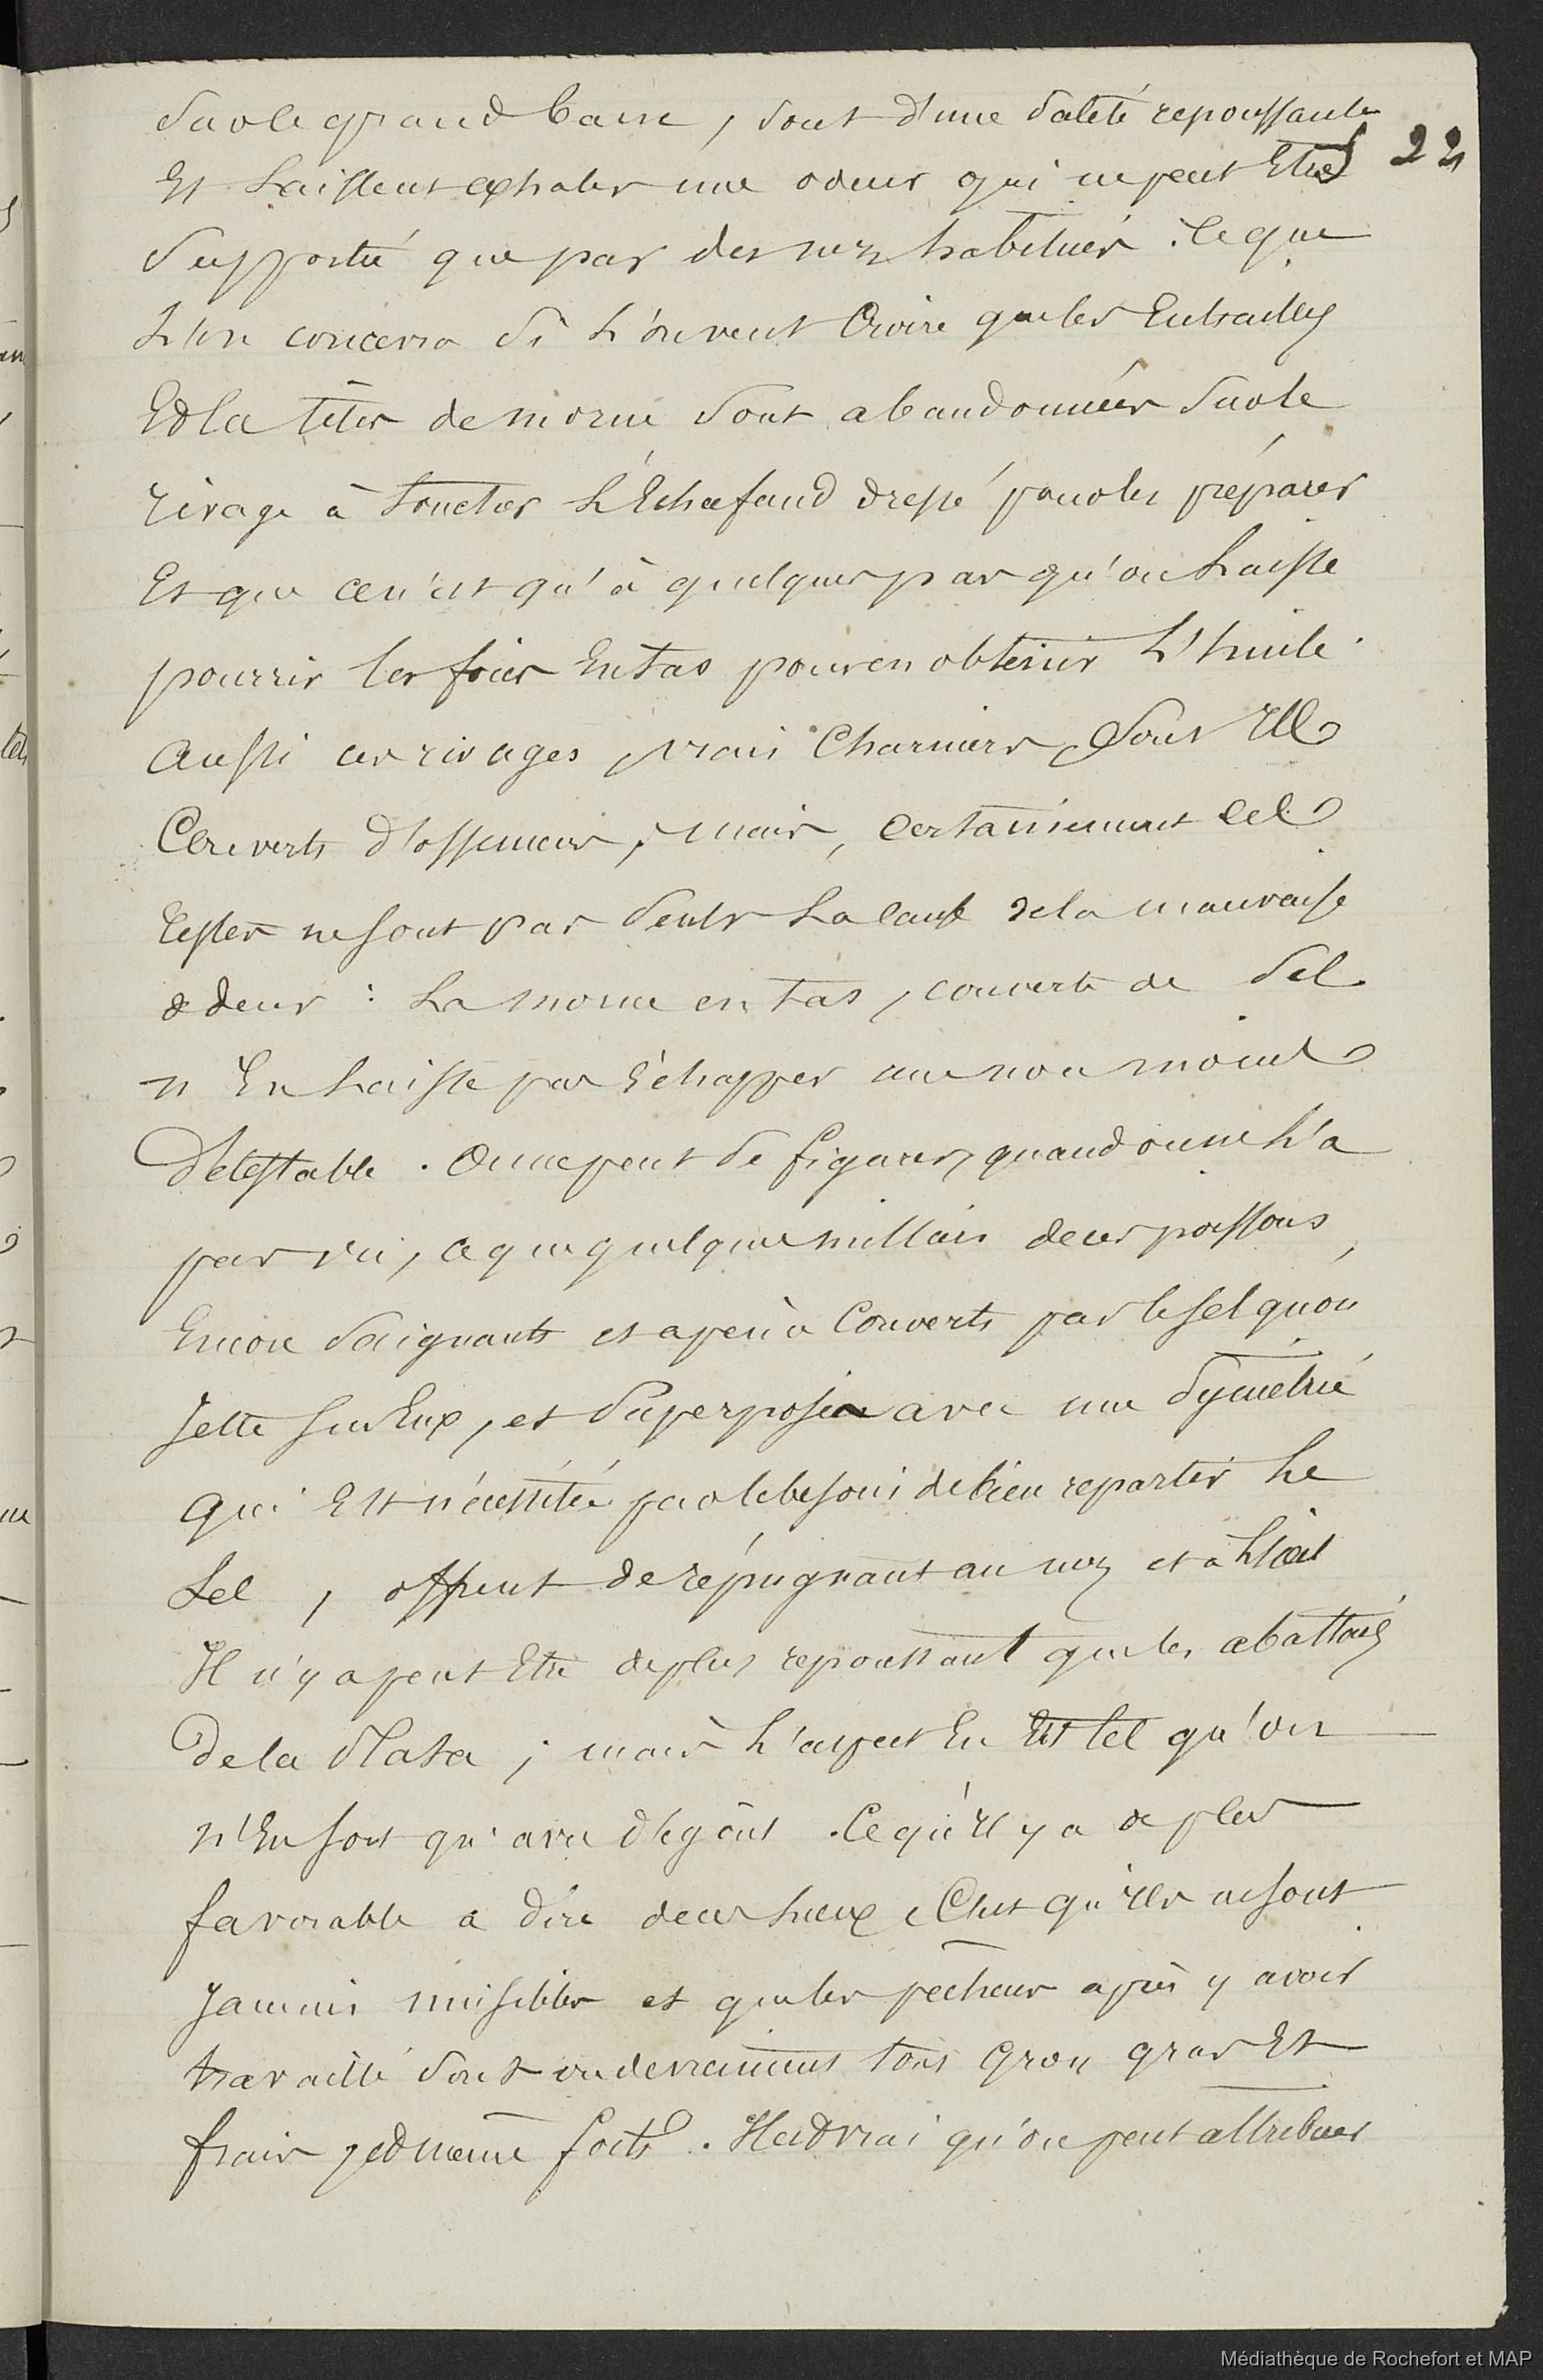 Sur le grand banc, sont d'une saleté repoussante
22
Et Laissent exhaler une odeur qui ne peut Etre
Supporté que par des nez habitués. Ce que
L'on concevra si L'on veut Croire que les Entrailles
Et la têtes de morue Sont abandonnées Sur le
rivage à toucher L'Echafaud dressé pour les préparer
Et que ce n'est qu'à quelques pas qu'on Laisse
pourrir les foies En tas pour en obtenir L'huile.
Aussi ces rivages, vrais Charniers, Sont Ils
Couverts d'ossements, mais, Certainement Ces
restes ne sont pas Seuls La cause de la mauvaise
odeur : La morue en tas, couverte de Sel
n'En Laisse pas Echapper une non moins
Detestable. On ne peut Se figurer, quand on ne L'a
pas vu, ce que quelques milliers de ces poissons,
Encore Saignants et a peine Couverts par le sel qu'on
Jette sur Eux, et Superposés avec une Symétrie
qui Est nécessitée par le besoin de bien repartir Le
Sel, offrent de répugnant au nez et à L'oeil
Il n'y a peut Etre de plus repoussant que les abattoirs
De la Plata ; mais L'aspect En Est tel qu'on
n'En sort qu'avec dégout. Ce qu'Il y a de plus
favorable a dire de ces Lieux, C'est qu'Ils ne sont
Jamais nuisibles et que les pêcheurs après y avoir
travaillé Sont ou deviennent tous gros gras Et
frais, et même forts. Il est vrai qu'on peut attribuer
Médiathèque de Rochefort et MAP